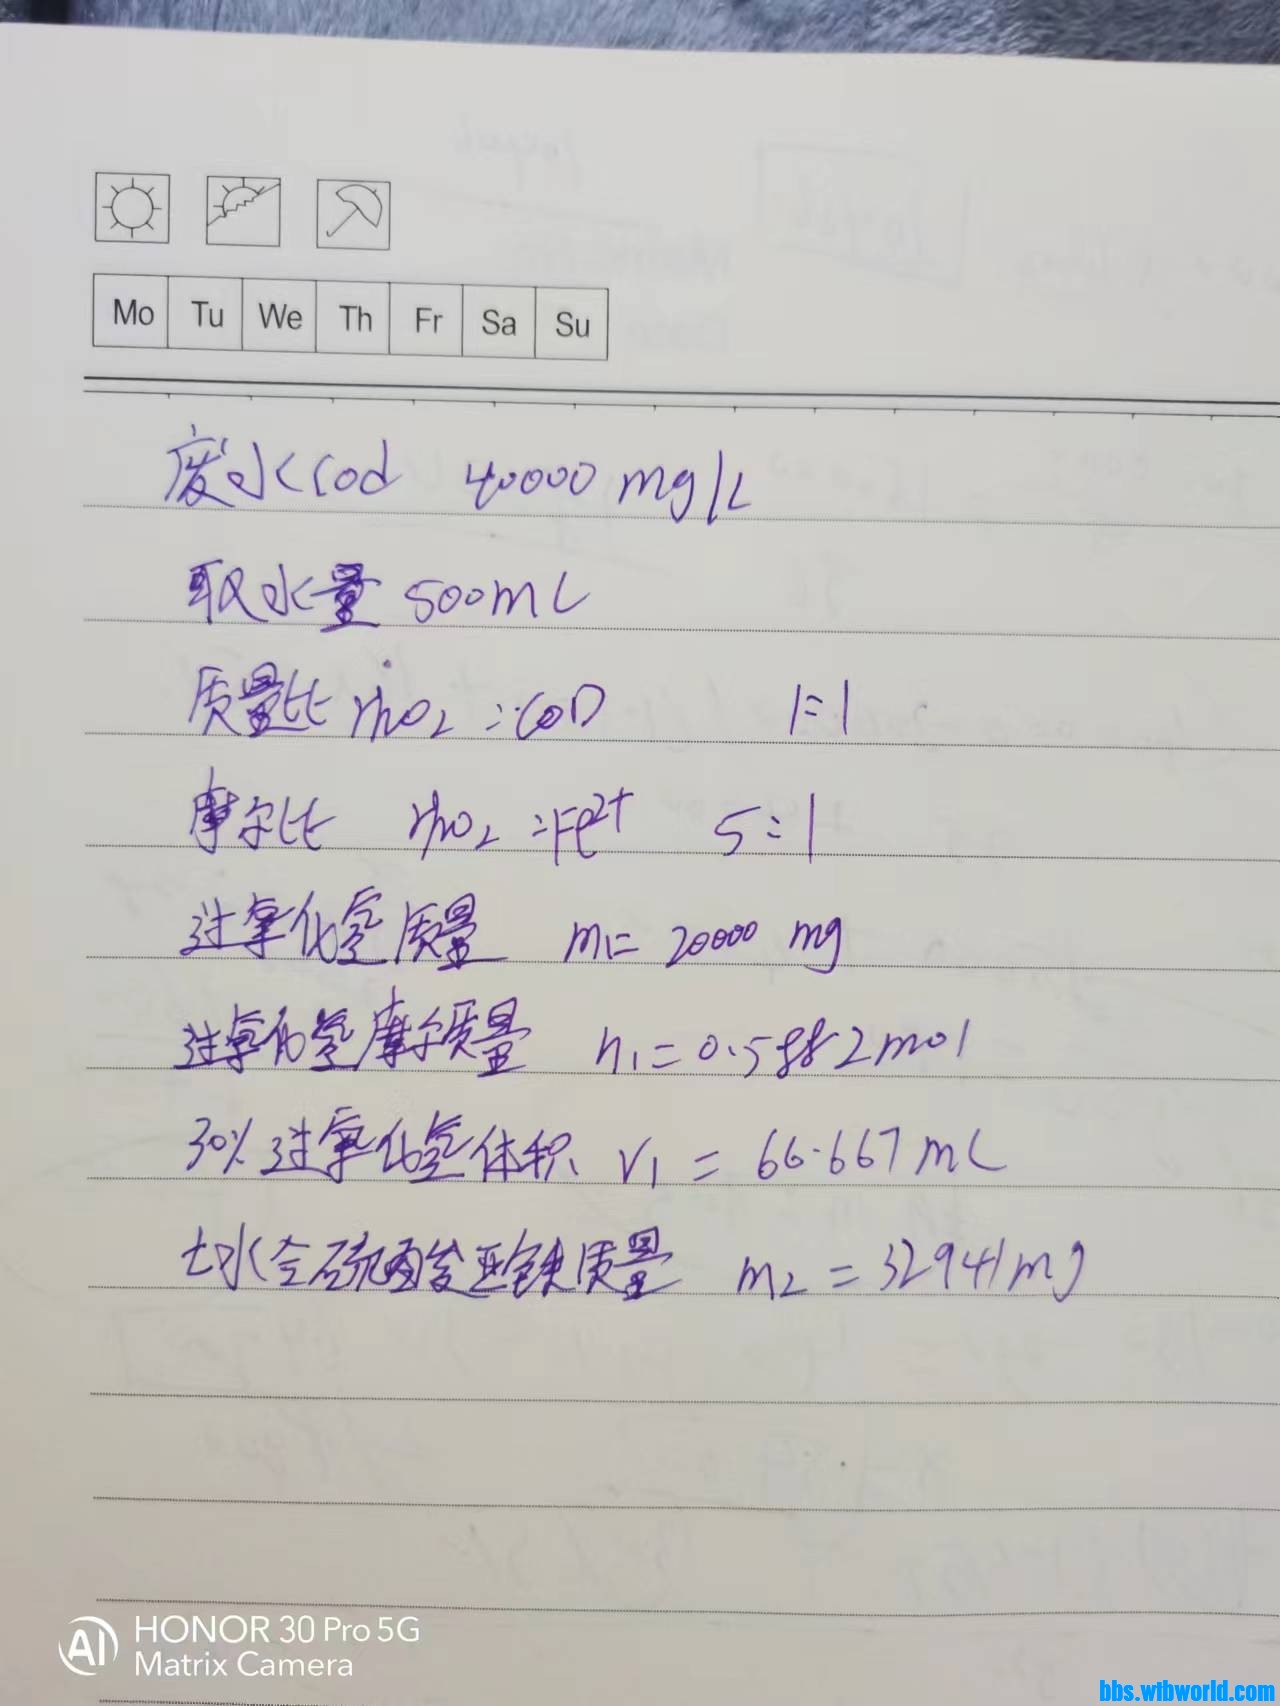 Mo Tu We Th Fr Sa Su
废水cod 40000 mg/L
取水量 500mL
质量比 H2O2 :COD 1:1
摩尔比 H2O2 :Fe2+ 5:1
过氧化氢质量 m1= 20000 mg
过氧化氢摩尔质量 n1=0.5882mol
30%过氧化氢体积 V1 = 66.667mL
七水合硫酸亚铁质量 m2=32941mg
AI HONOR 30 Pro 5G
Matrix Camera
bbs.wibworld.com